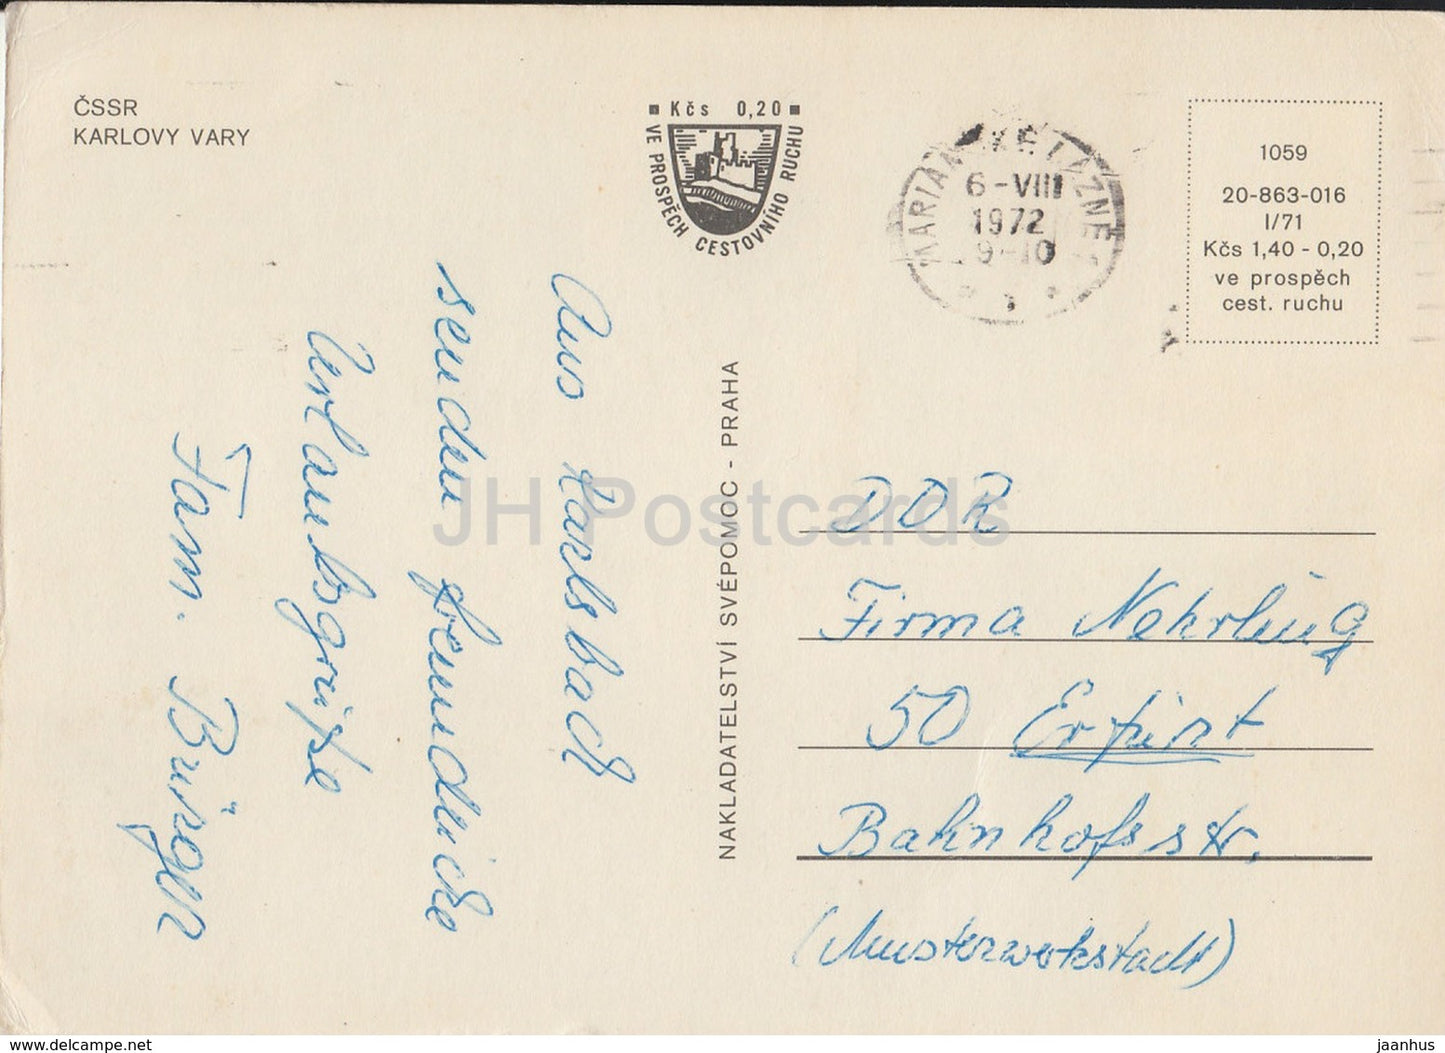 ČSSR
KARLOVY VARY
Kčs 0,20
VE PROSPĚCH CESTOVNÍHO RUCHU
MARIÁNSKÉ LÁZNĚ 1
6-VIII
1972
9-10
1059
20-863-016
I/71
Kčs 1,40 - 0,20
ve prospěch
cest. ruchu
Aus Karlsbad
senden freundliche
Urlaubsgrüße
Fam.
NAKLADATELSTVÍ SVÉPOMOC - PRAHA
DDR
Firma Nehrling
50 Erfurt
Bahnhofsstr.
(Musterwerkstadt)
JH Postcards
www.delcampe.net
jaanhus